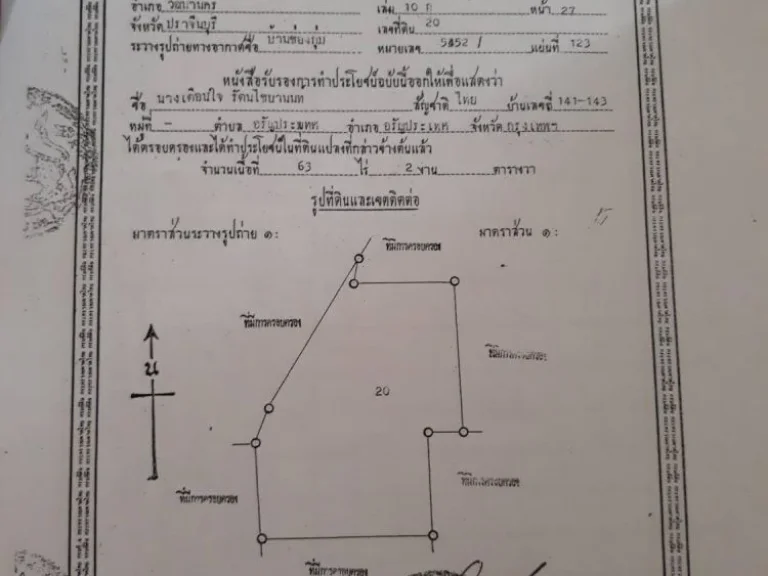 อำเภอ วัฒนานคร เล่ม 10 ก หน้า 27
จังหวัด ปราจีนบุรี เลขที่ดิน 20
ระวางรูปถ่ายทางอากาศชื่อ หมายเลข 5452 / แผ่นที่ 123
หนังสือรับรองการทำประโยชน์ฉบับนี้ออกให้เพื่อแสดงว่า
ชื่อ นางเตือนใจ สัญชาติ ไทย บ้านเลขที่ 141-143
หมู่ที่ - ตำบล อรัญประเทศ อำเภอ อรัญประเทศ จังหวัด กรุงเทพฯ
ได้ครอบครองและได้ทำประโยชน์ในที่ดินแปลงที่กล่าวข้างต้นแล้ว
จำนวนเนื้อที่ 63 ไร่ 2 งาน ตารางวา
รูปที่ดินและเขตติดต่อ
มาตราส่วนระวางรูปถ่าย ๑: มาตราส่วน ๑:
ที่มีการครอบครอง
ที่มีการครอบครอง
ที่มีการครอบครอง
น
20
ที่มีการครอบครอง
ที่มีการครอบครอง
ที่มีการครอบครอง